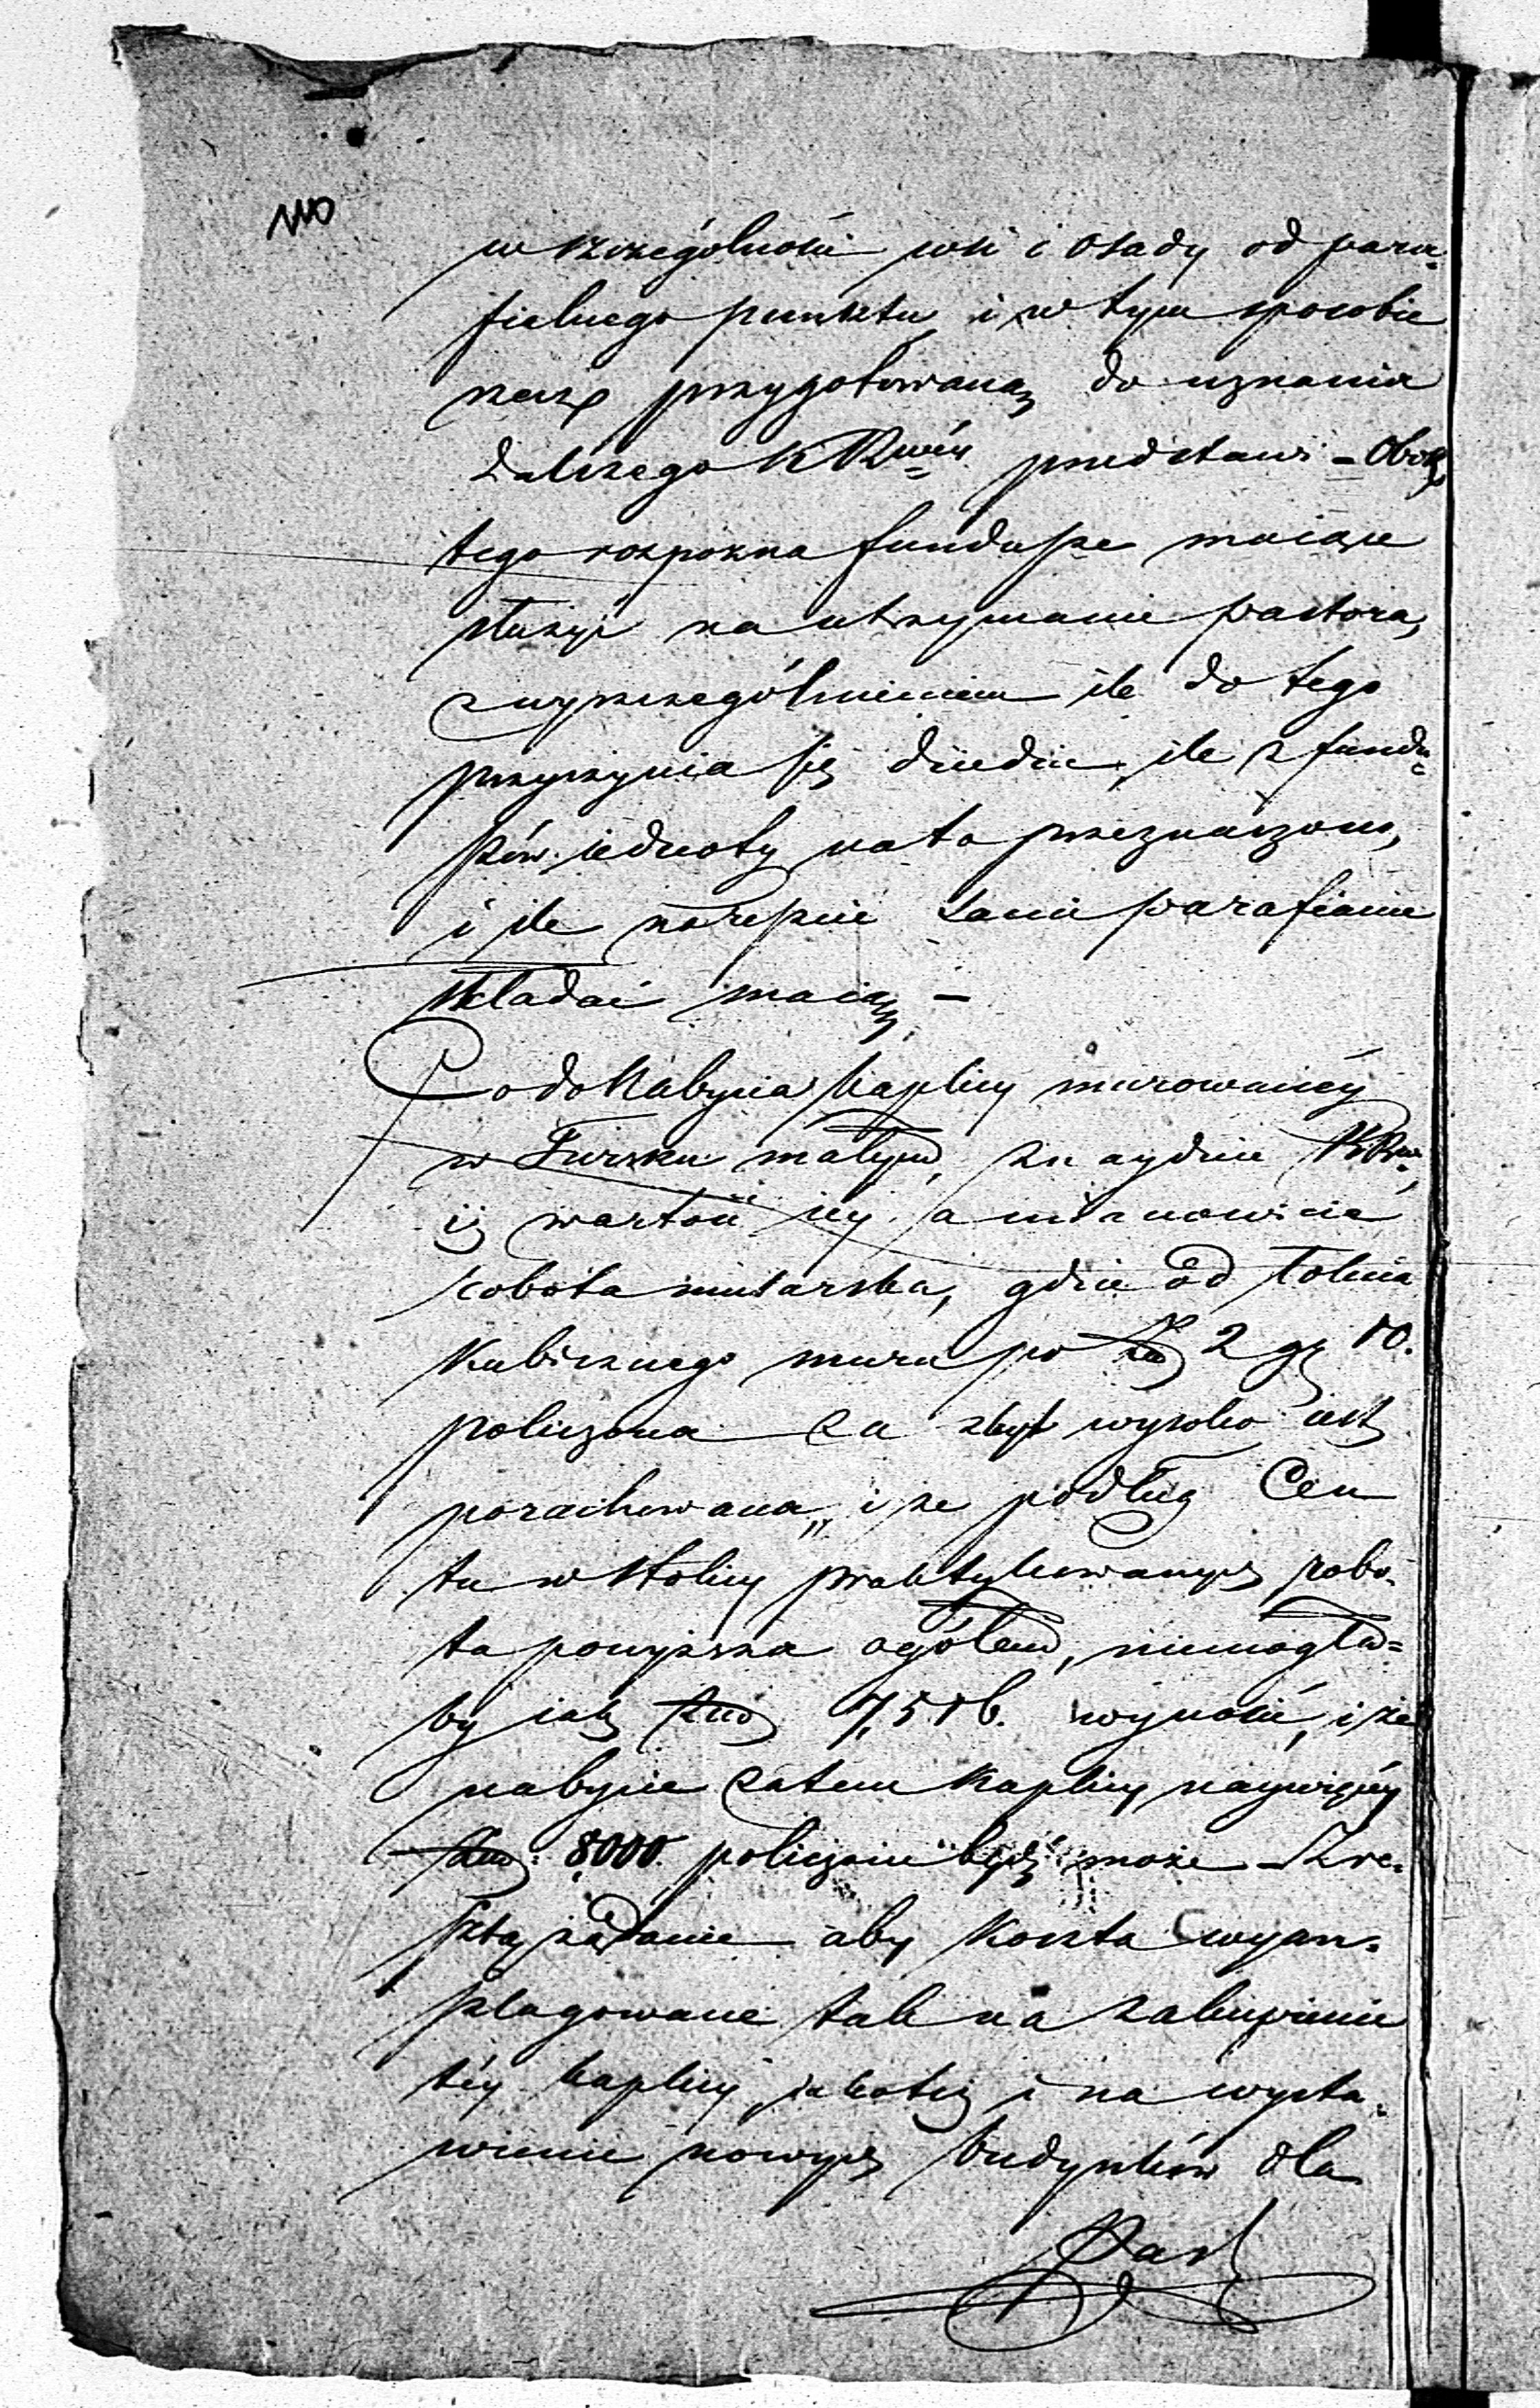 w szczególności wsi i osady od para-
fialnego punktu, i w tym sposobie
rzecz przygotowaną do uznania
dalszego KRwéy przedstawi – Obok
tego rozpozna fundusze maiące
służyć na utrzymanie pastora,
z wyszczególnieniem ile do tego
przyczynia się dziedzic, ile z fundu-
szów jednoty na to przeznaczono,
i ile nareszcie sami parafianie
składać maią –
Co do nabycia kaplicy murowanéy
w małym, znayduie KRwa
iż wartość iéy a mianowicie
robota mularska, gdzie od łokcia
kubicznego muru po Złp 2 gr 10.
policzona za zbyt wysoko iest
porachowana, i że podług Cen
tu w stolicy praktykowanych robo-
ta powyższa ogółem, niemogła-
by iak Złp 7,516. wynosić, i że
nabycie zatem kaplicy naywięcéy
Złp: 8000 policzone być może – Zre-
sztą żądanie aby koszta wyan-
szlagowane tak na zakupienie
téy kaplicy jakoteż i na wysta-
wienie nowych budynków dla
Past